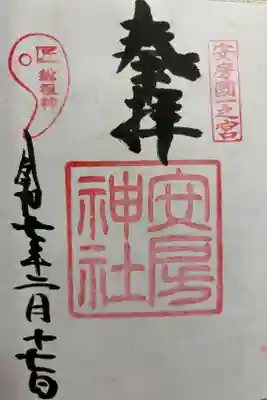 安房國一之宮
奉拝
安房神社
匠 総祖神
令和七年二月十七日